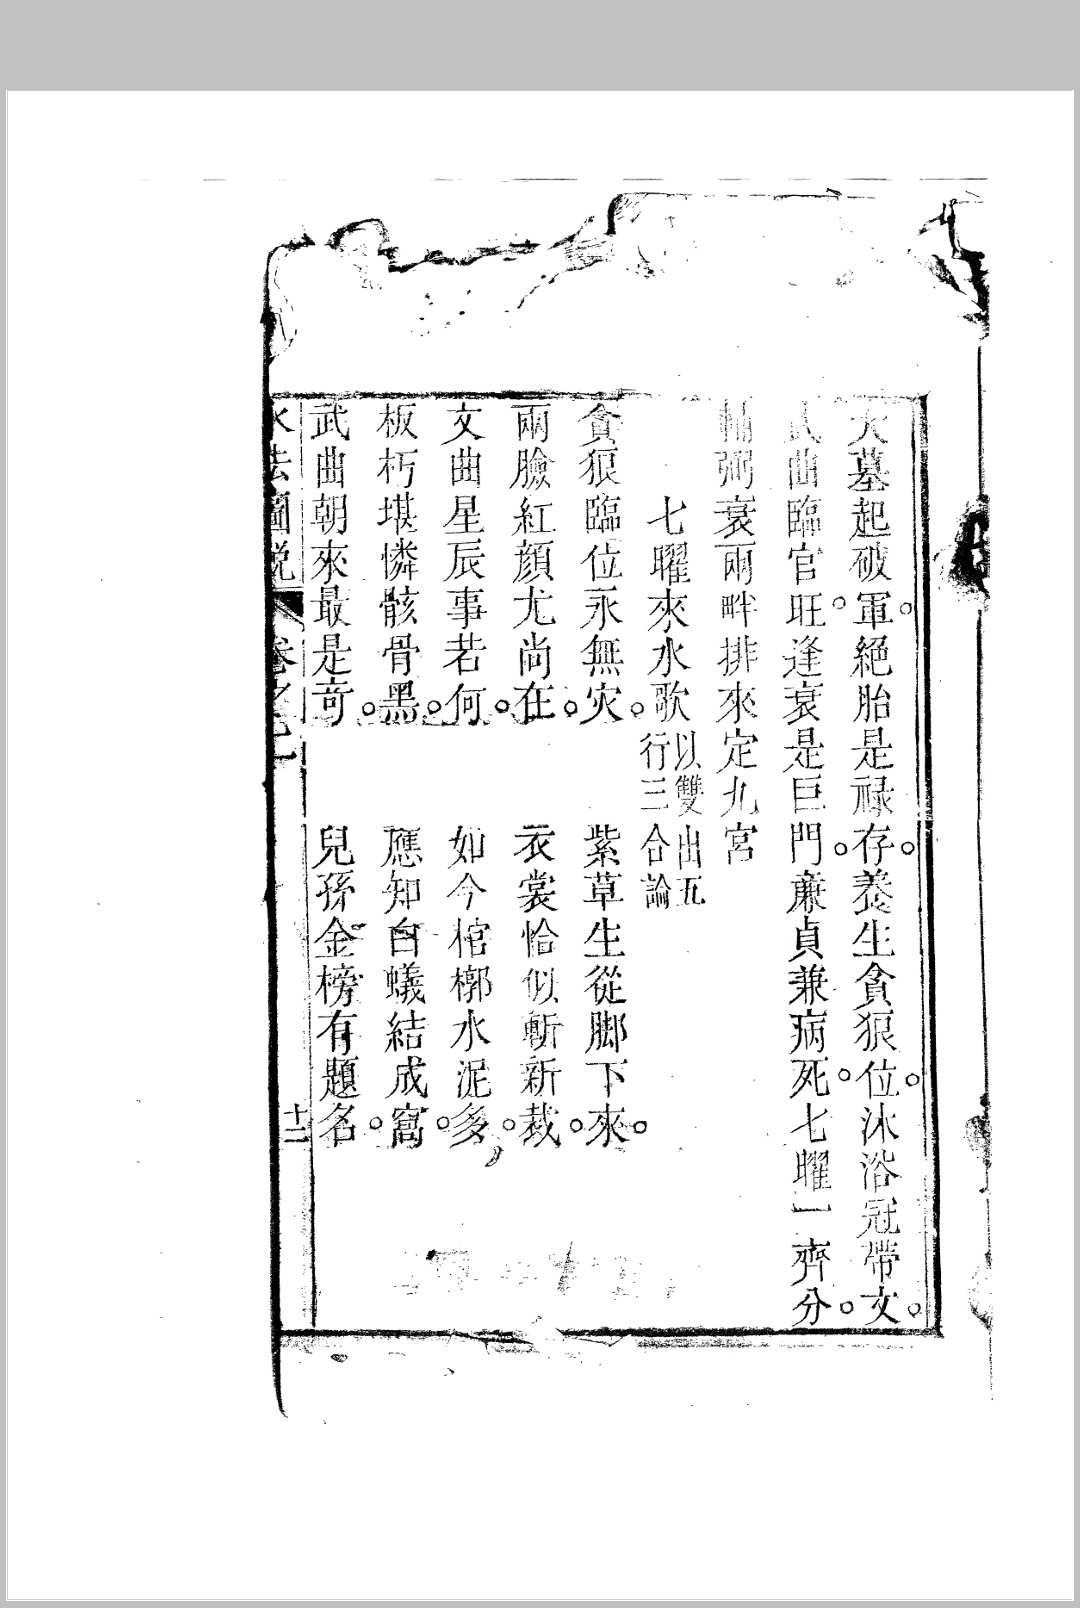 火墓起破軍。絕胎是祿存。養生貪狼位。沐浴冠帶文。
武曲臨官旺。逢衰是巨門。廉貞兼病死。七曜一齊分。
輔弼衰兩畔排來定九宮
七曜來水歌以雙出五行三合論
貪狼臨位永無灾。紫草生從腳下來。
兩臉紅顏尤尚在。衣裳恰似斬新裁。
文曲星辰事若何。如今棺槨水泥多。
板朽堪憐骸骨黑。應知白蟻結成窩。
武曲朝來最是奇。兒孫金榜有題名
水法圖說 卷之 十二